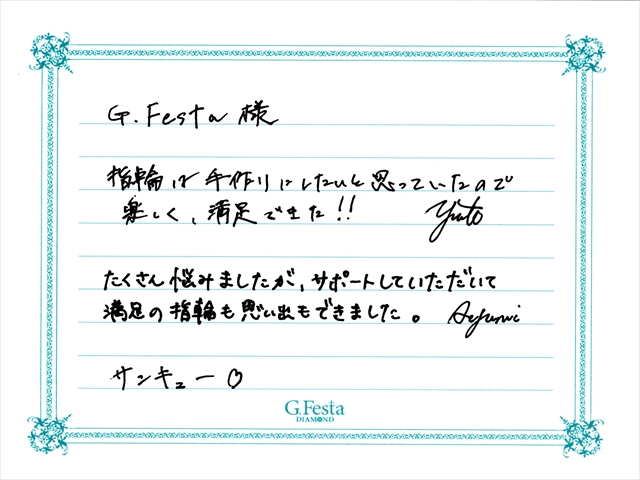 G.Festa 様
指輪は手作りにしたいと思っていたので
楽しく、満足できた!!
Yuto
たくさん悩みましたが、サポートしていただいて
満足の指輪も思い出もできました。 Ayumi
サンキュー♡
G.Festa
DIAMOND